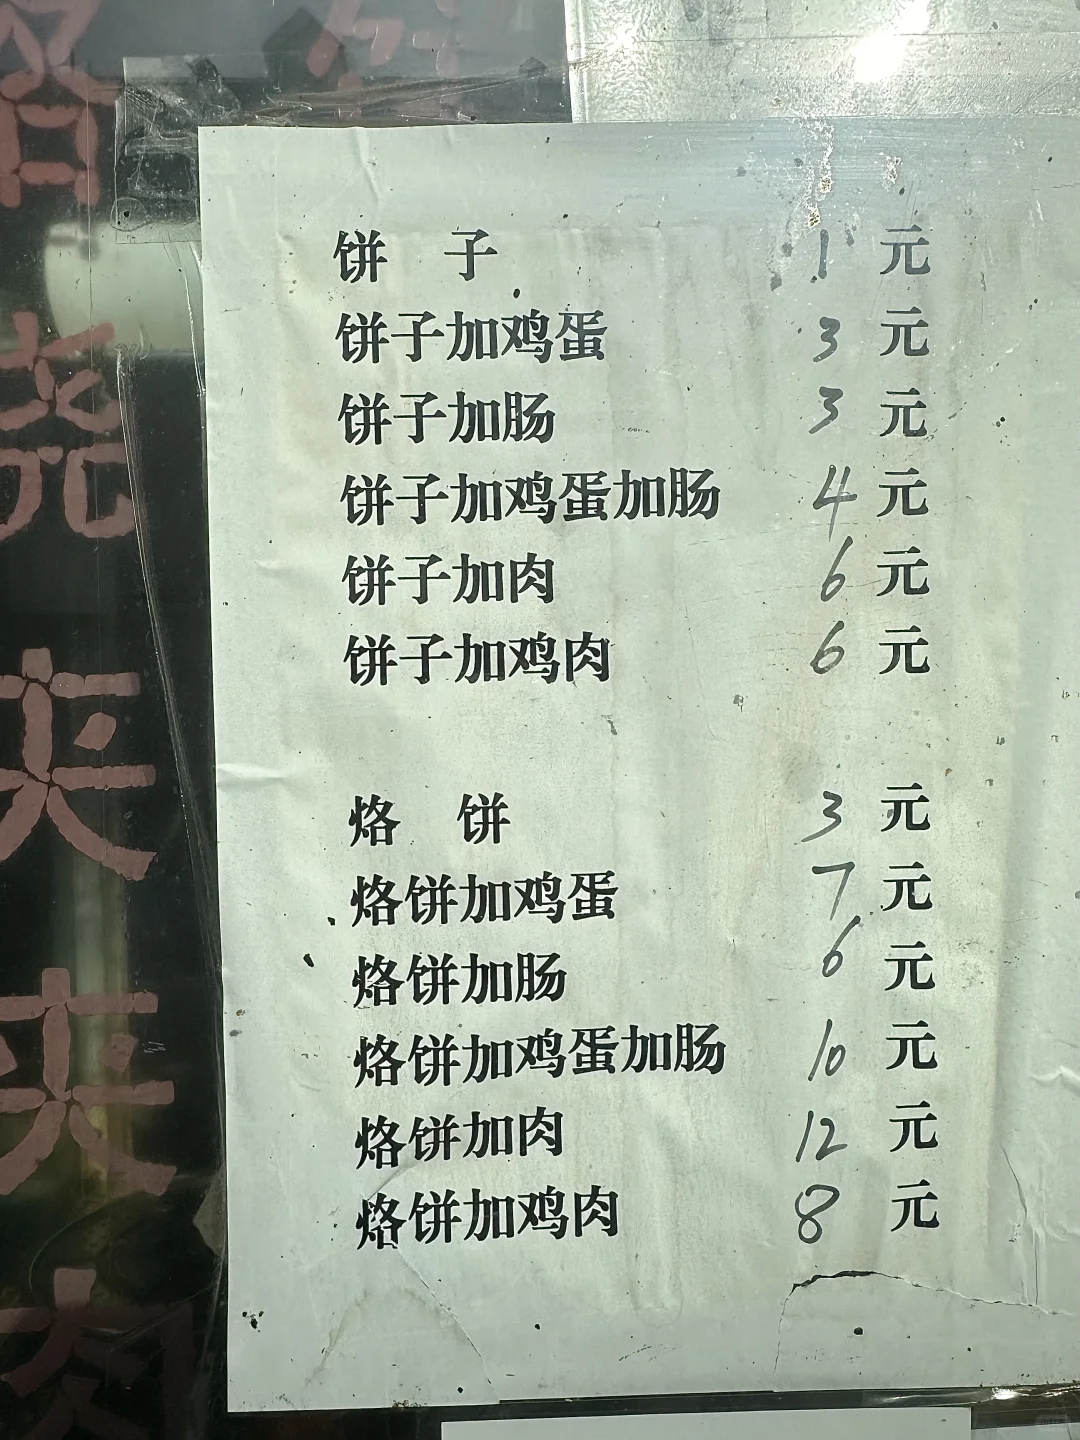 饼子 1元
饼子加鸡蛋 3元
饼子加肠 3元
饼子加鸡蛋加肠 4元
饼子加肉 6元
饼子加鸡肉 6元
烙饼 3元
烙饼加鸡蛋 7元
烙饼加肠 6元
烙饼加鸡蛋加肠 10元
烙饼加肉 12元
烙饼加鸡肉 8元
夹
夹
肉